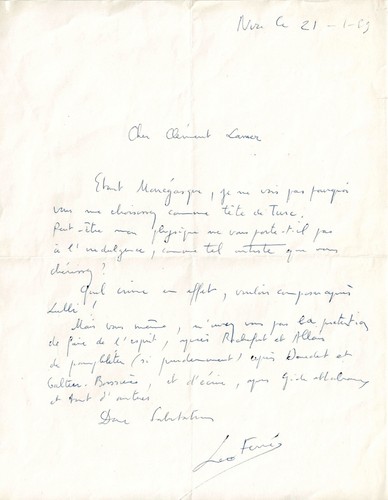 Nice le 21 - 1 - 59
Cher Clément Lanser
Etant Monégasque, je ne vois pas pourquoi
vous me choisissez comme tête de Turc.
Peut-être mon physique ne vous porte-t-il pas
à l'indulgence, comme tel artiste que vous
chérissez ?
Quel crime en effet, vouloir composer après
Lulli !
Mais vous même, n'avez vous pas la prétention
de faire de l'esprit, après Rochefort et Allais
de pamphléter (si prudemment) après Daudet et
Galtier-Boissière, et d'écrire, après Gide Malraux
et tant d'autres
Donc Salutations
Leo Ferré